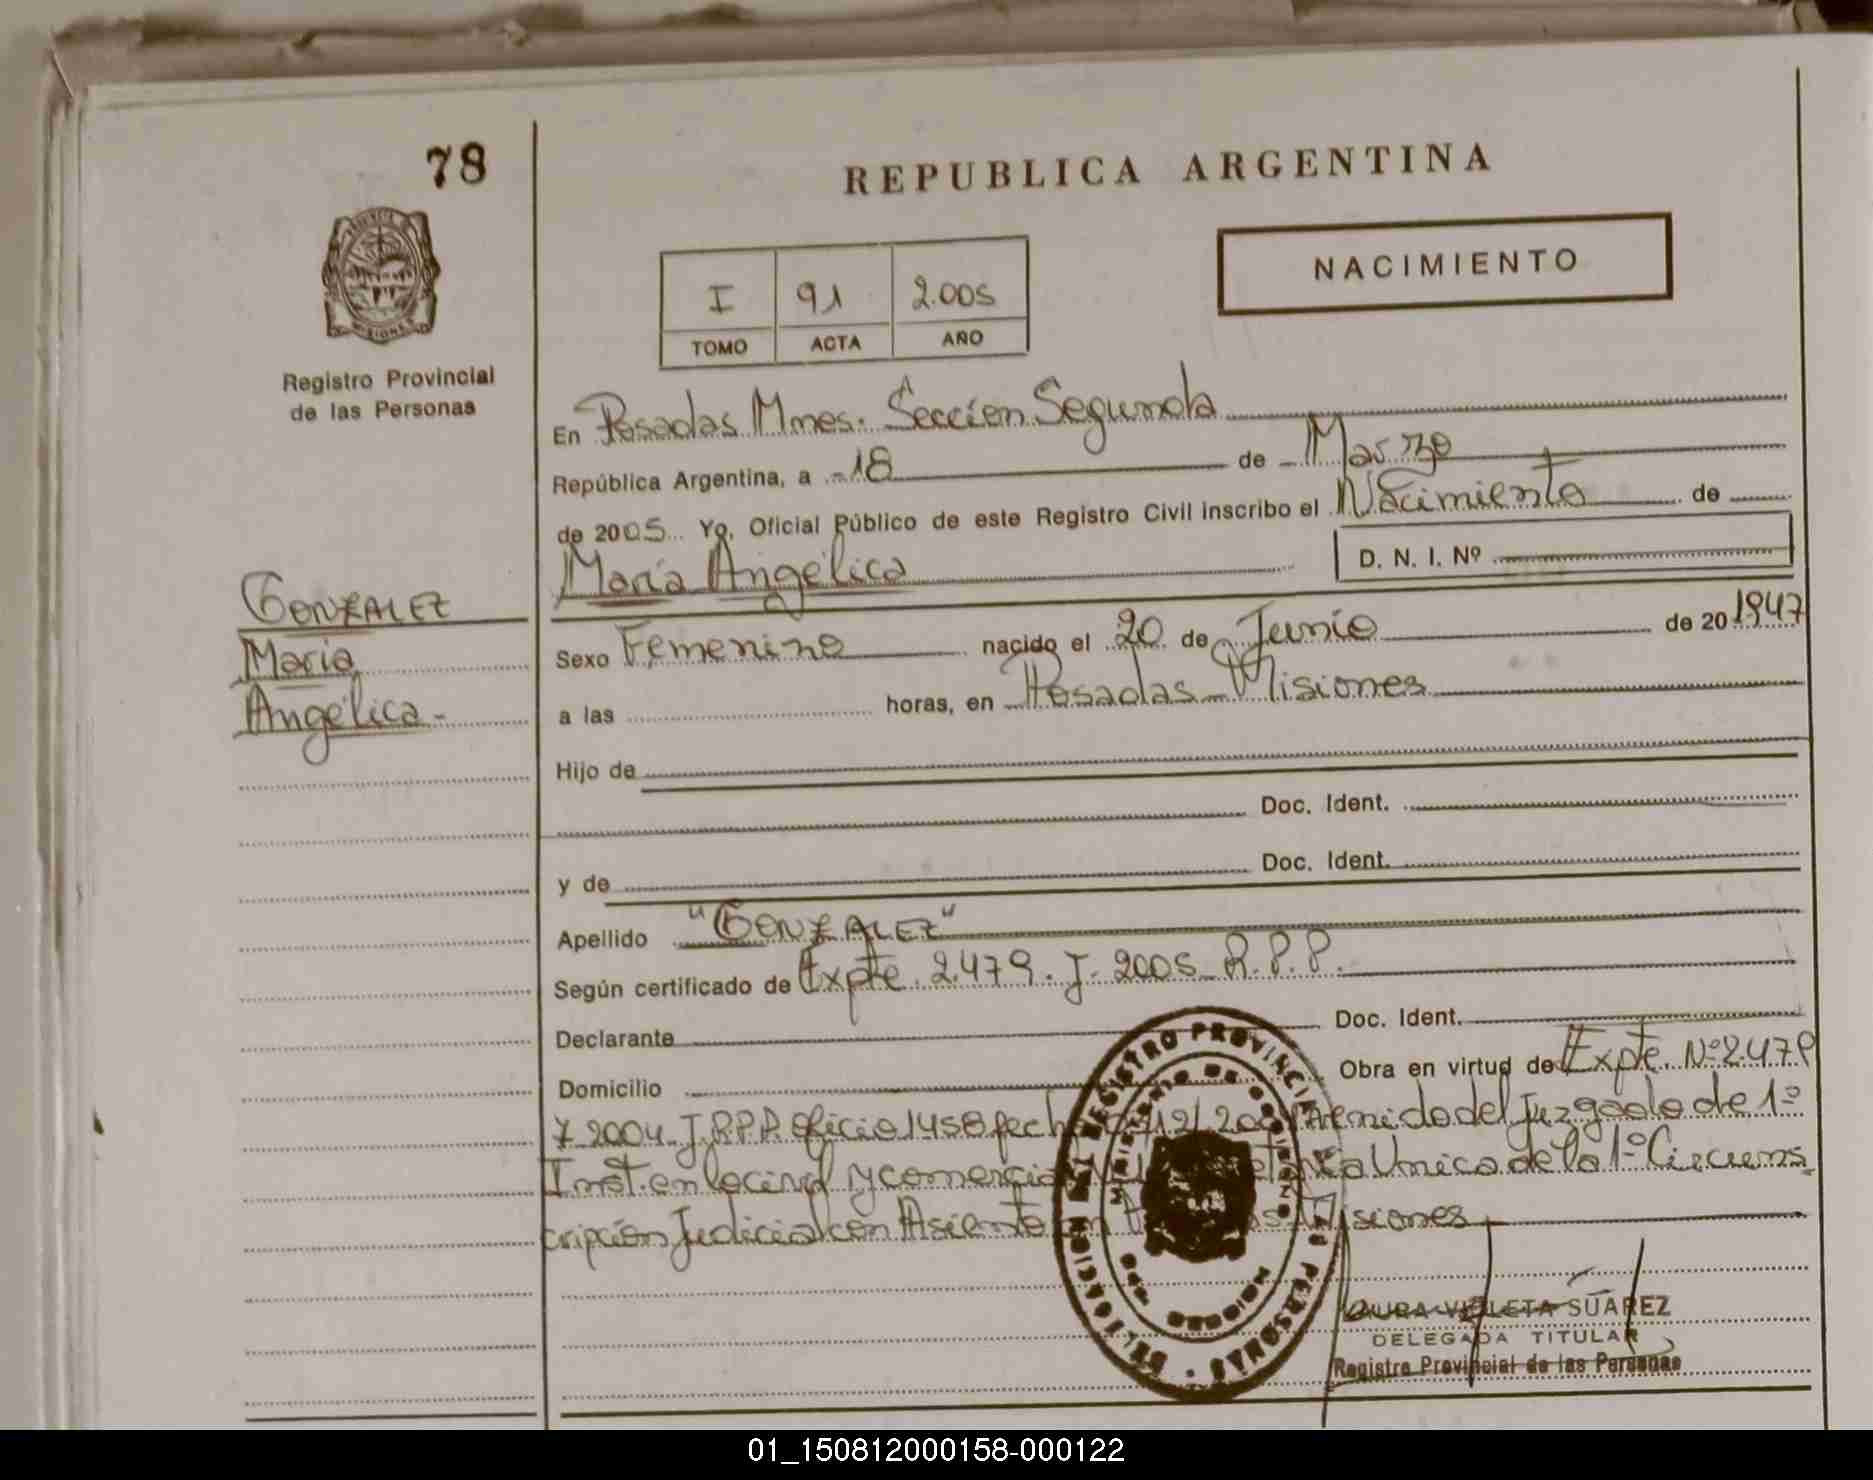 78
REPUBLICA ARGENTINA
MISIONES
Registro Provincial
de las Personas
I 91 2.005
TOMO ACTA AÑO
NACIMIENTO
En Posadas Mnes. Sección Segunda
República Argentina, a -18 de Marzo
de 2005 Yo, Oficial Público de este Registro Civil inscribo el Nacimiento de
María Angélica D. N. I. Nº
GONZALEZ
María
Angélica-
Sexo Femenino nacido el 20 de Junio de 20 1947
a las horas, en Posadas Misiones
Hijo de
Doc. Ident.
y de Doc. Ident.
Apellido "GONZALEZ"
Según certificado de Expte. 2.479. J. 2005 R.P.P.
Declarante Doc. Ident.
Domicilio Obra en virtud de Expte. Nº 2.479
2004 J.R.P.P. Oficio 1458 del Juzgado de 1º
Inst. en lo civil y comercial Unica de la 1º Circuns
cripción Judicial con Asiento Misiones
REGISTRO PROVINCIAL DE LAS PERSONAS
MINISTERIO DE GOBIERNO
LAURA VIOLETA SUAREZ
DELEGADA TITULAR
Registro Provincial de las Personas
01_150812000158-000122